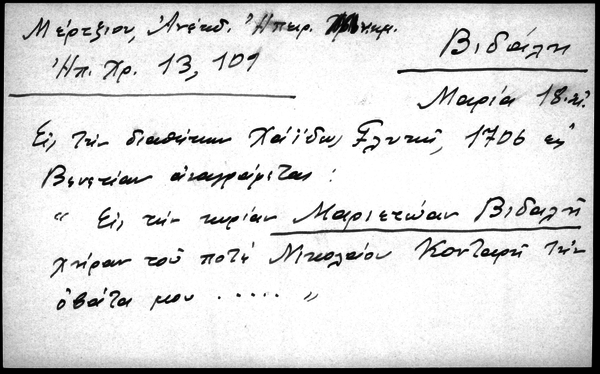 Μέρτζιου, Ἀνέκδ. Ἠπειρ. Μνημ.
Ἠπ. Χρ. 13, 109
Βιδάλη
Μαρία 18.αἰ.
Εἰς τὴν διαθήκην Χάϊδως Γλυκῆ, 1706 εἰς
Βενετίαν ἀναγράφεται:
“ Εἰς τὴν κυρίαν Μαριετώαν Βιδαλῆ
χήραν τοῦ ποτὲ Νικολαίου Κονταρῆ τὴν
ὀβάτα μου ..... „